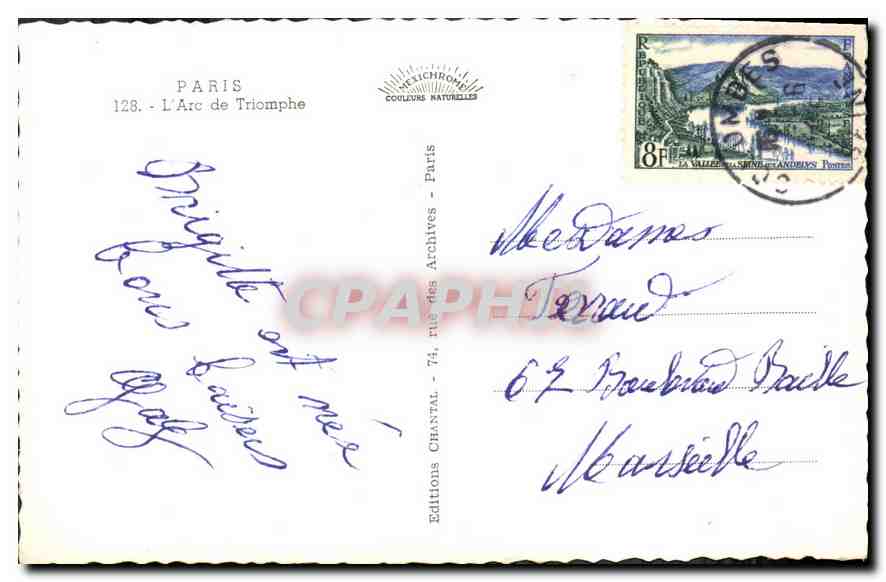 PARIS
128. - L'Arc de Triomphe
MEXICHROME
COULEURS NATURELLES
REPUBLIQUE
FRANÇAISE
8F
LA VALLÉE DE LA SEINE AUX ANDELYS POSTES
Brigitte est née
bons baisers
Editions CHANTAL - 74, rue des Archives - Paris
CPAPHIL
Mesdames
Ferrand
67 Boulevard Baille
Marseille